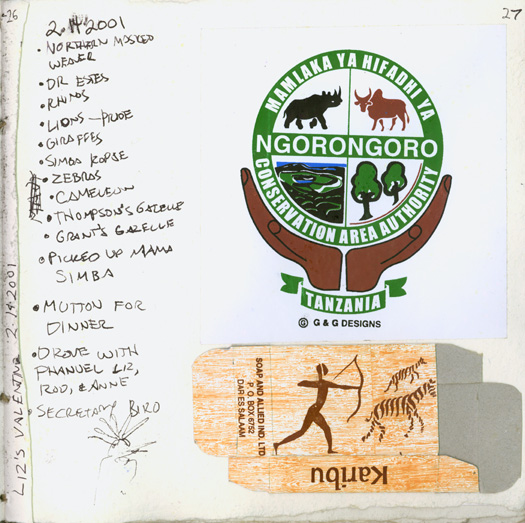 26
27
2.14.2001
• NORTHERN MASKED
WEAVER
• DR ESTES
• RHINOS
• LIONS – PRIDE
• GIRAFFES
• SIMBA KOPJE
• ZEBRAS
• CAMELEON
• THOMPSON'S GAZELLE
• GRANT'S GAZELLE
• PICKED UP MAMA
SIMBA
• MUTTON FOR
DINNER
• DROVE WITH
PHANUEL LIZ,
ROD, & ANNE
• SECRETARY BIRD
LIZ'S VALENTINE 2.14.2001
MAMLAKA YA HIFADHI YA
NGORONGORO
CONSERVATION AREA AUTHORITY
TANZANIA
© G & G DESIGNS
SOAP AND ALLIED IND. LTD
P. O. BOX 6752
DAR ES SALAAM
Karibu